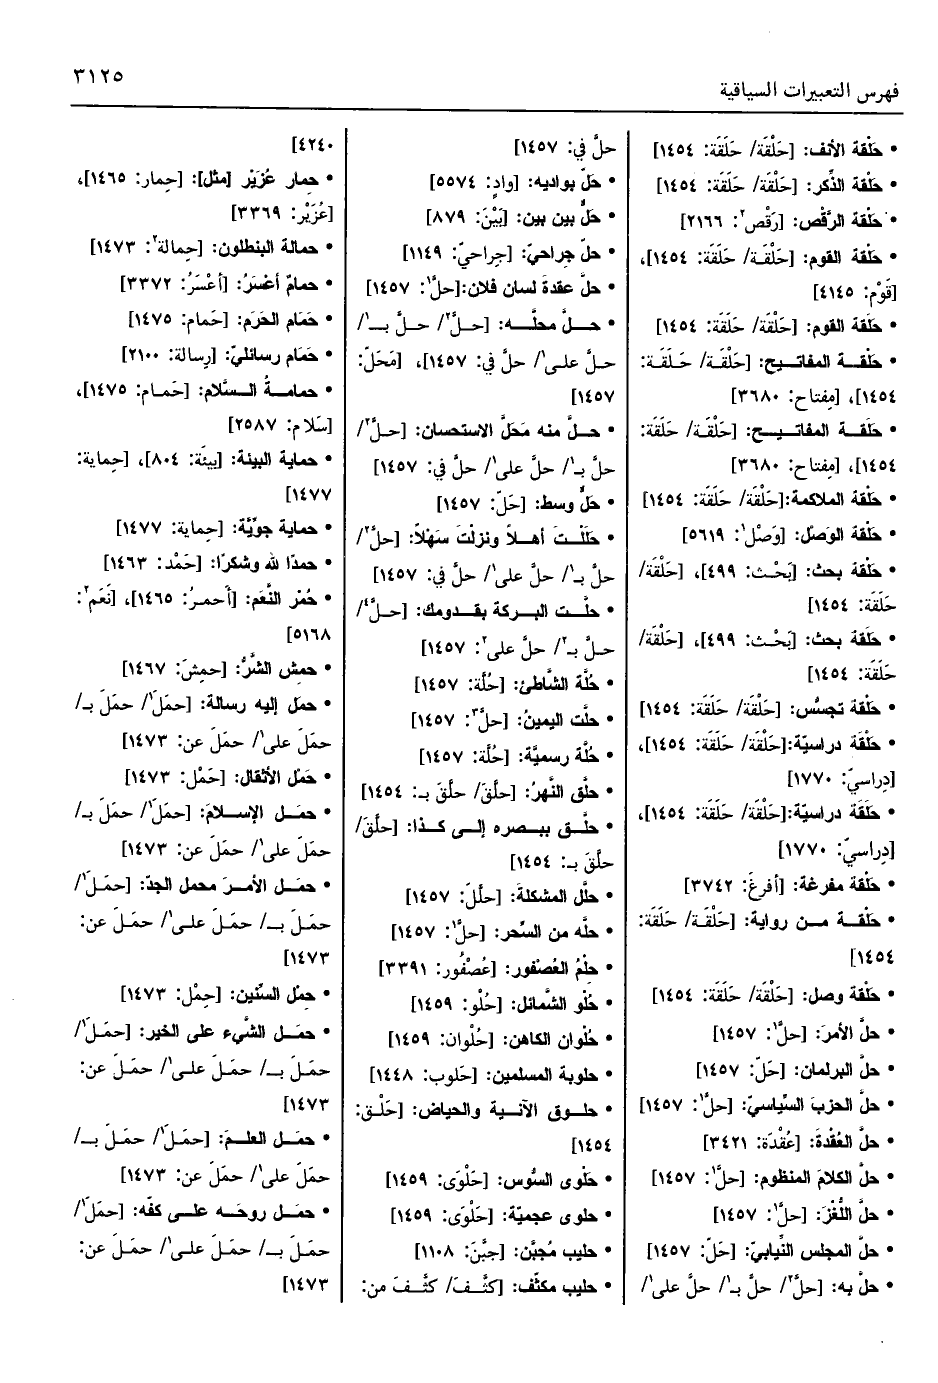 ٣١٢٥
فهرس التعبيرات السياقية
• حَلْقة الأنف: [حَلْقَة/ حَلَقَة: ١٤٥٤]
• حَلْقة الذِّكر: [حَلْقَة/ حَلَقَة: ١٤٥٤]
• حَلْقة الرَّقْص: [رَقْص٢: ٢١٦٦]
• حَلْقة القوم: [حَلْقَـة/ حَلَقَة: ١٤٥٤]،
[قَوْم: ٤١٤٥]
• حَلَقة القوم: [حَلْقَة/ حَلَقَة: ١٤٥٤]
• حَلْقــة المفاتــيح: [حَلْقَـة/ حَـلَقَـة:
١٤٥٤]، [مِفتاح: ٣٦٨٠]
• حَلَقــة المفاتــيــح: [حَلْقَـة/ حَلَقَة:
١٤٥٤]، [مِفتاح: ٣٦٨٠]
• حَلْقة الملاكمة: [حَلْقَة/ حَلَقَة: ١٤٥٤]
• حَلْقة الوَصْل: [وَصْل١: ٥٦١٩]
• حَلْقة بحث: [بَحْـث: ٤٩٩]، [حَلْقَة/
حَلَقَة: ١٤٥٤]
• حَلَقة بحث: [بَحْـث: ٤٩٩]، [حَلْقَة/
حَلَقَة: ١٤٥٤]
• حَلْقة تجسُّس: [حَلْقَة/ حَلَقَة: ١٤٥٤]
• حَلْقة دراسيّة: [حَلْقَة/ حَلَقَة: ١٤٥٤]،
[دِراسيّ: ١٧٧٠]
• حَلَقة دراسيّة: [حَلْقَة/ حَلَقَة: ١٤٥٤]،
[دِراسيّ: ١٧٧٠]
• حَلْقة مفرغة: [أفرغَ: ٣٧٤٢]
• حَلْقــة مــن رواية: [حَلْقَـة/ حَلَقَة:
١٤٥٤]
• حَلْقة وصل: [حَلْقَة/ حَلَقَة: ١٤٥٤]
• حلَّ الأمرَ: [حلَّ١: ١٤٥٧]
• حلّ البرلمان: [حَلّ: ١٤٥٧]
• حلَّ الحزبَ السِّياسيّ: [حلَّ١: ١٤٥٧]
• حلَّ العُقْدةَ: [عُقْدَة: ٣٤٢١]
• حلَّ الكلامَ المنظوم: [حلَّ١: ١٤٥٧]
• حلَّ اللُّغْزَ: [حلَّ١: ١٤٥٧]
• حلّ المجلس النِّيابيّ: [حَلّ: ١٤٥٧]
• حلَّ به: [حلَّ٢/ حلَّ بـ١/ حلَّ على١/
حلَّ في: ١٤٥٧]
• حلَّ بواديه: [وادٍ: ٥٥٧٤]
• حَلٌّ بين بين: [بَيْنَ: ٨٧٩]
• حلّ جراحيّ: [جِراحيّ: ١١٤٩]
• حلَّ عقدةَ لسان فلان: [حلَّ١: ١٤٥٧]
• حــلَّ محلَّــه: [حـلَّ٢/ حـلَّ بــ١/
حـلَّ علـى١/ حلَّ في: ١٤٥٧]، [مَحَلّ:
١٤٥٧]
• حــلَّ منه مَحَلَّ الاستحسان: [حـلَّ٢/
حلَّ بـ١/ حلَّ على١/ حلَّ في: ١٤٥٧]
• حَلٌّ وسط: [حَلّ: ١٤٥٧]
• حَلَلْــتَ أهــلاً ونزلْتَ سَهْلاً: [حلَّ٢/
حلَّ بـ١/ حلَّ على١/ حلَّ في: ١٤٥٧]
• حلَّــت البــركة بقــدومك: [حـلَّ٤/
حـلَّ بـ٢/ حلَّ على٢: ١٤٥٧]
• حُلَّة الشَّاطئ: [حُلَّة: ١٤٥٧]
• حلَّت اليمينُ: [حلَّ٣: ١٤٥٧]
• حُلَّة رسميَّة: [حُلَّة: ١٤٥٧]
• حلَّق النَّهرُ: [حلَّقَ/ حلَّقَ بـ: ١٤٥٤]
• حلَّــق ببــصره إلــى كــذا: [حلَّقَ/
حلَّقَ بـ: ١٤٥٤]
• حلَّل المشكلةَ: [حلَّلَ: ١٤٥٧]
• حلَّه من السِّحر: [حلَّ١: ١٤٥٧]
• حلْمُ العُصْفور: [عُصْفُور: ٣٣٩١]
• حُلْو الشَّمائل: [حُلْو: ١٤٥٩]
• حُلْوان الكاهن: [حُلْوان: ١٤٥٩]
• حلوبة المسلمين: [حَلوب: ١٤٤٨]
• حلــوق الآنــية والحياض: [حَلْـق:
١٤٥٤]
• حَلْوى السُّوس: [حَلْوَى: ١٤٥٩]
• حلوى عجميّة: [حَلْوَى: ١٤٥٩]
• حليب مُجبَّن: [جبَّنَ: ١١٠٨]
• حليب مكثَّف: [كثَّــفَ/ كثَّــفَ من:
٤٢٤٠]
• حمار عُزَيْر [مثل]: [حِمار: ١٤٦٥]،
[عُزَيْر: ٣٣٦٩]
• حمالة البنطلون: [حِمالة٢: ١٤٧٣]
• حمامٌ أعْسَرُ: [أعْسَرُ: ٣٣٧٢]
• حَمَام الحَرَم: [حَمام: ١٤٧٥]
• حَمَام رسائليّ: [رِسالة: ٢١٠٠]
• حمامــةُ الــسَّلام: [حَمـام: ١٤٧٥]،
[سَلام: ٢٥٨٧]
• حماية البيئة: [بيئَة: ٨٠٤]، [حِماية:
١٤٧٧]
• حماية جوِّيَّة: [حِماية: ١٤٧٧]
• حمدًا لله وشكرًا: [حَمْد: ١٤٦٣]
• حُمْر النَّعَم: [أحمرُ: ١٤٦٥]، [نَعَم٢:
٥١٦٨]
• حمش الشَّرُّ: [حمِشَ: ١٤٦٧]
• حمَل إليه رسالة: [حمَلَ١/ حمَلَ بـ/
حمَلَ على١/ حمَلَ عن: ١٤٧٣]
• حَمْل الأثقال: [حَمْل: ١٤٧٣]
• حمَــل الإســلامَ: [حمَلَ١/ حمَلَ بـ/
حمَلَ على١/ حمَلَ عن: ١٤٧٣]
• حمَــل الأمــرَ محمل الجدّ: [حمَـلَ١/
حمَـلَ بـ/ حمَـلَ علـى١/ حمَلَ عن:
١٤٧٣]
• حِمْل السِّنين: [حِمْل: ١٤٧٣]
• حمَــل الشَّيء على الخير: [حمَـلَ١/
حمَـلَ بـ/ حمَـلَ علـى١/ حمَـلَ عن:
١٤٧٣]
• حمَــل العلــمَ: [حمَـلَ١/ حمَـلَ بــ/
حمَلَ على١/ حمَلَ عن: ١٤٧٣]
• حمَــل روحَــه علــى كفِّه: [حمَـلَ١/
حمَـلَ بـ/ حمَـلَ علـى١/ حمَلَ عن:
١٤٧٣]